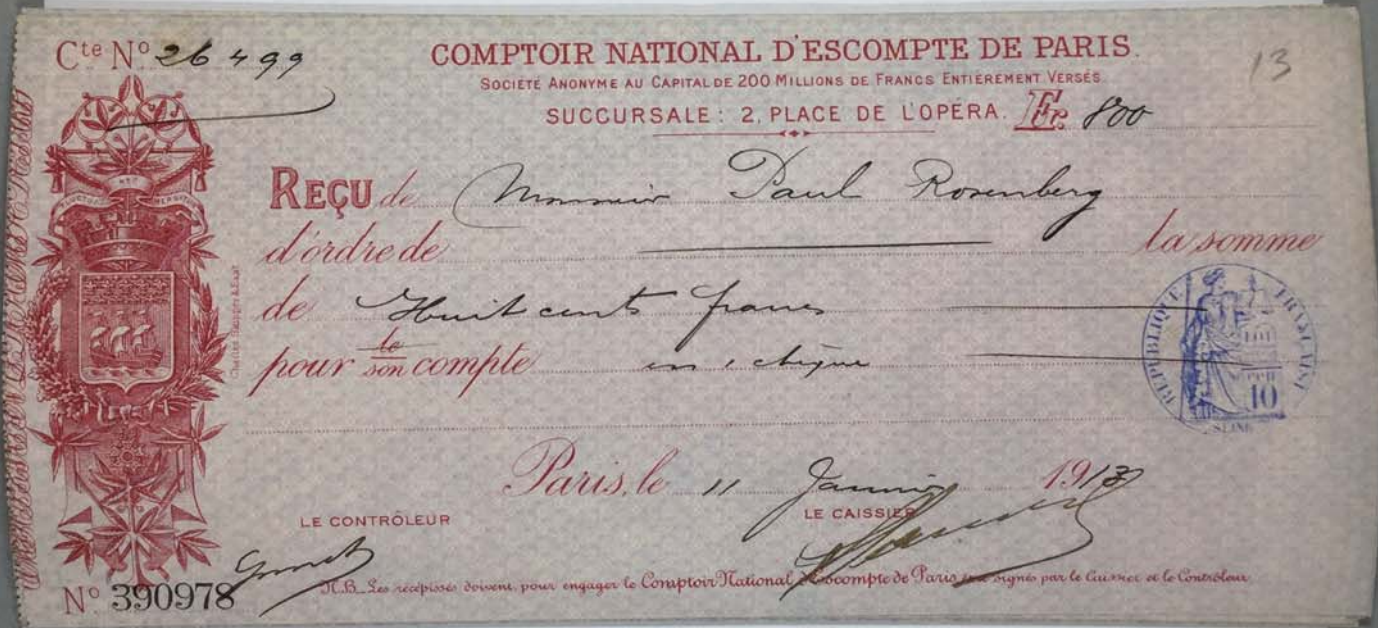 Cte No 26499
COMPTOIR NATIONAL D'ESCOMPTE DE PARIS.
13
SOCIÉTÉ ANONYME AU CAPITAL DE 200 MILLIONS DE FRANCS ENTIÈREMENT VERSÉS
SUCCURSALE: 2, PLACE DE L'OPÉRA. Fr. 800
REÇU de Monsieur Paul Rosenberg
d'ordre de la somme
de Huit cents francs
pour le son compte en 1 chèque
RÉPUBLIQUE FRANÇAISE
LOI
10
SEINE
Paris, le 11 Janvier 1913
LE CONTRÔLEUR LE CAISSIER
No 390978
N.B. Les récépissés doivent, pour engager le Comptoir National d'Escompte de Paris signés par le Caissier et le Contrôleur